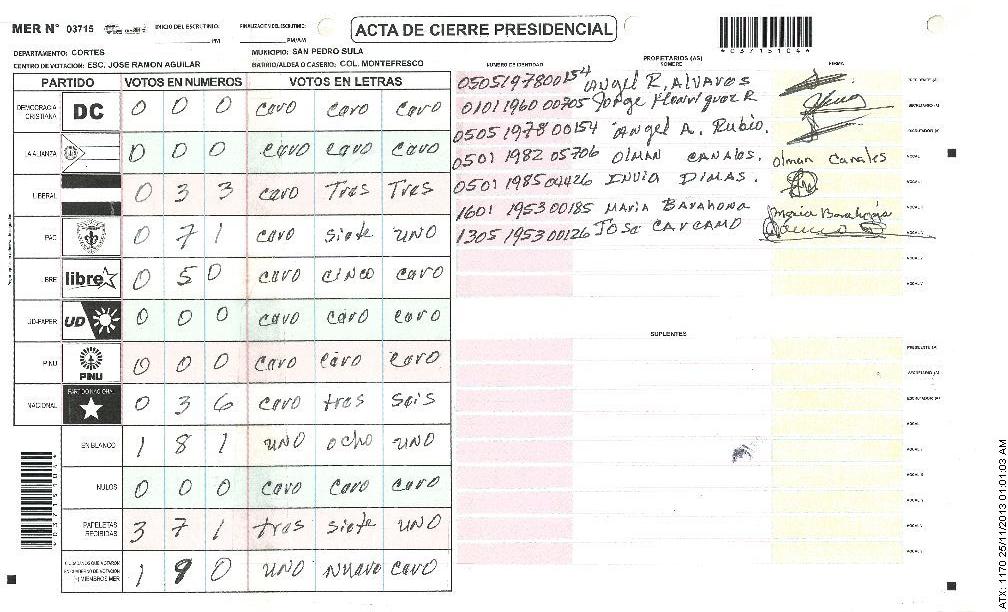 MER N° 03715 INICIO DEL ESCRUTINIO: PM FINALIZACION DEL ESCRUTINIO: PM/AM
ACTA DE CIERRE PRESIDENCIAL
DEPARTAMENTO: CORTES MUNICIPIO: SAN PEDRO SULA
CENTRO DE VOTACION: ESC. JOSE RAMON AGUILAR BARRIO/ALDEA O CASERIO: COL. MONTEFRESCO
PARTIDO VOTOS EN NUMEROS VOTOS EN LETRAS
DEMOCRACIA CRISTIANA DC 0 0 0 cero cero cero
LA ALIANZA 0 0 0 cero cero cero
LIBERAL 0 3 3 cero Tres Tres
PAC 0 7 1 cero siete UNO
LIBRE libre 0 5 0 cero cinco cero
UD-FAPER UD 0 0 0 cero cero cero
PINU PINU 0 0 0 cero cero cero
NACIONAL PARTIDO NACIONAL 0 3 6 cero tres seis
EN BLANCO 1 8 1 UNO ocho UNO
NULOS 0 0 0 cero cero cero
PAPELETAS RECIBIDAS 3 7 1 tres siete UNO
CIUDADANOS QUE VOTARON EN CUADERNO DE VOTACION (+) MIEMBROS MER 1 9 0 UNO nueve cero
PROPIETARIOS (AS)
NUMERO DE IDENTIDAD NOMBRE FIRMA
0505197800154 Angel R. Alvares
0101 1960 00705 Jorge Henriquez R
0505 1978 00154 Angel A. Rubio.
0501 1982 05706 OLMAN CANALES. Olman Canales
0501 1985 04426 INVIA DIMAS.
1601 1953 00185 MARIA BARAHONA Maria Barahona
1305 1953 00126 JOSE CARCAMO
SUPLENTES
ATX: 1170 25/11/2013 01:01:03 AM